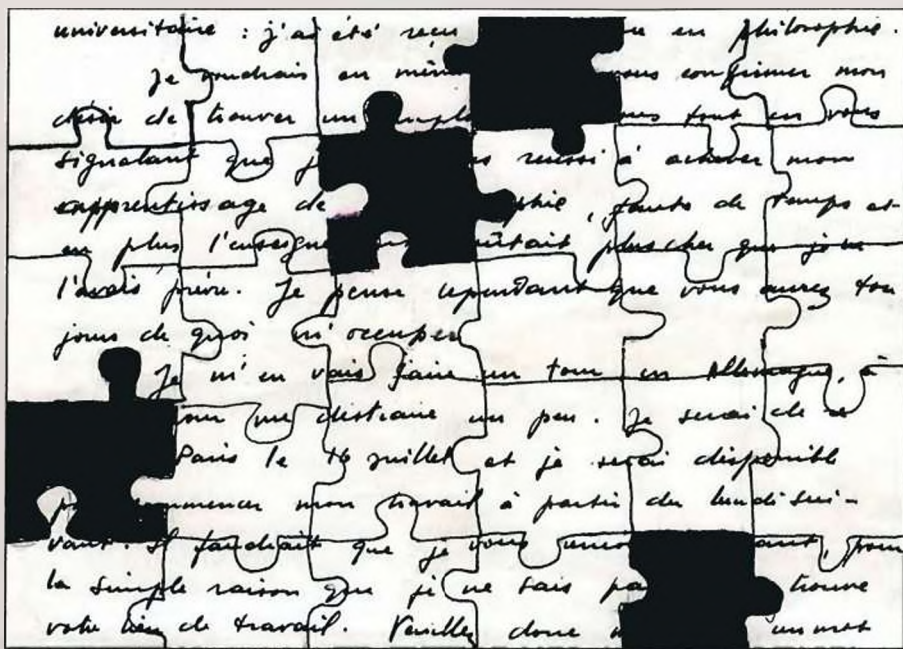 universitaire : j'ai été reçu en philosophie.
Je voudrais en même vous confirmer mon
désir de trouver un emploi tout en vous
signalant que j réussi à achever mon
apprentissage de phie, faute de temps et
en plus l'enseigne coûtait plus cher que je ne
l'avais prévu. Je pense cependant que vous aurez tou
jours de quoi m'occuper
Je m'en vais faire un tour en Allemagne, à
our me distraire un peu. Je serai de re
Paris le 16 juillet et je serai disponible
mmencer mon travail à partir du lundi sui-
vant. Il faudrait que je vous ant, pour
la simple raison que je ne sais pa trouve
votre lieu de travail. Veuillez donc un mot